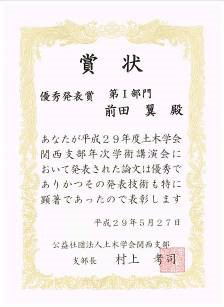 賞状
優秀発表賞 第Ⅰ部門
前田 翼 殿
あなたが平成29年度土木学会
関西支部年次学術講演会に
おいて発表された論文は優秀で
ありかつその発表技術も特に
顕著であったので表彰します
平成29年5月27日
公益社団法人土木学会関西支部
支部長 村上 考司